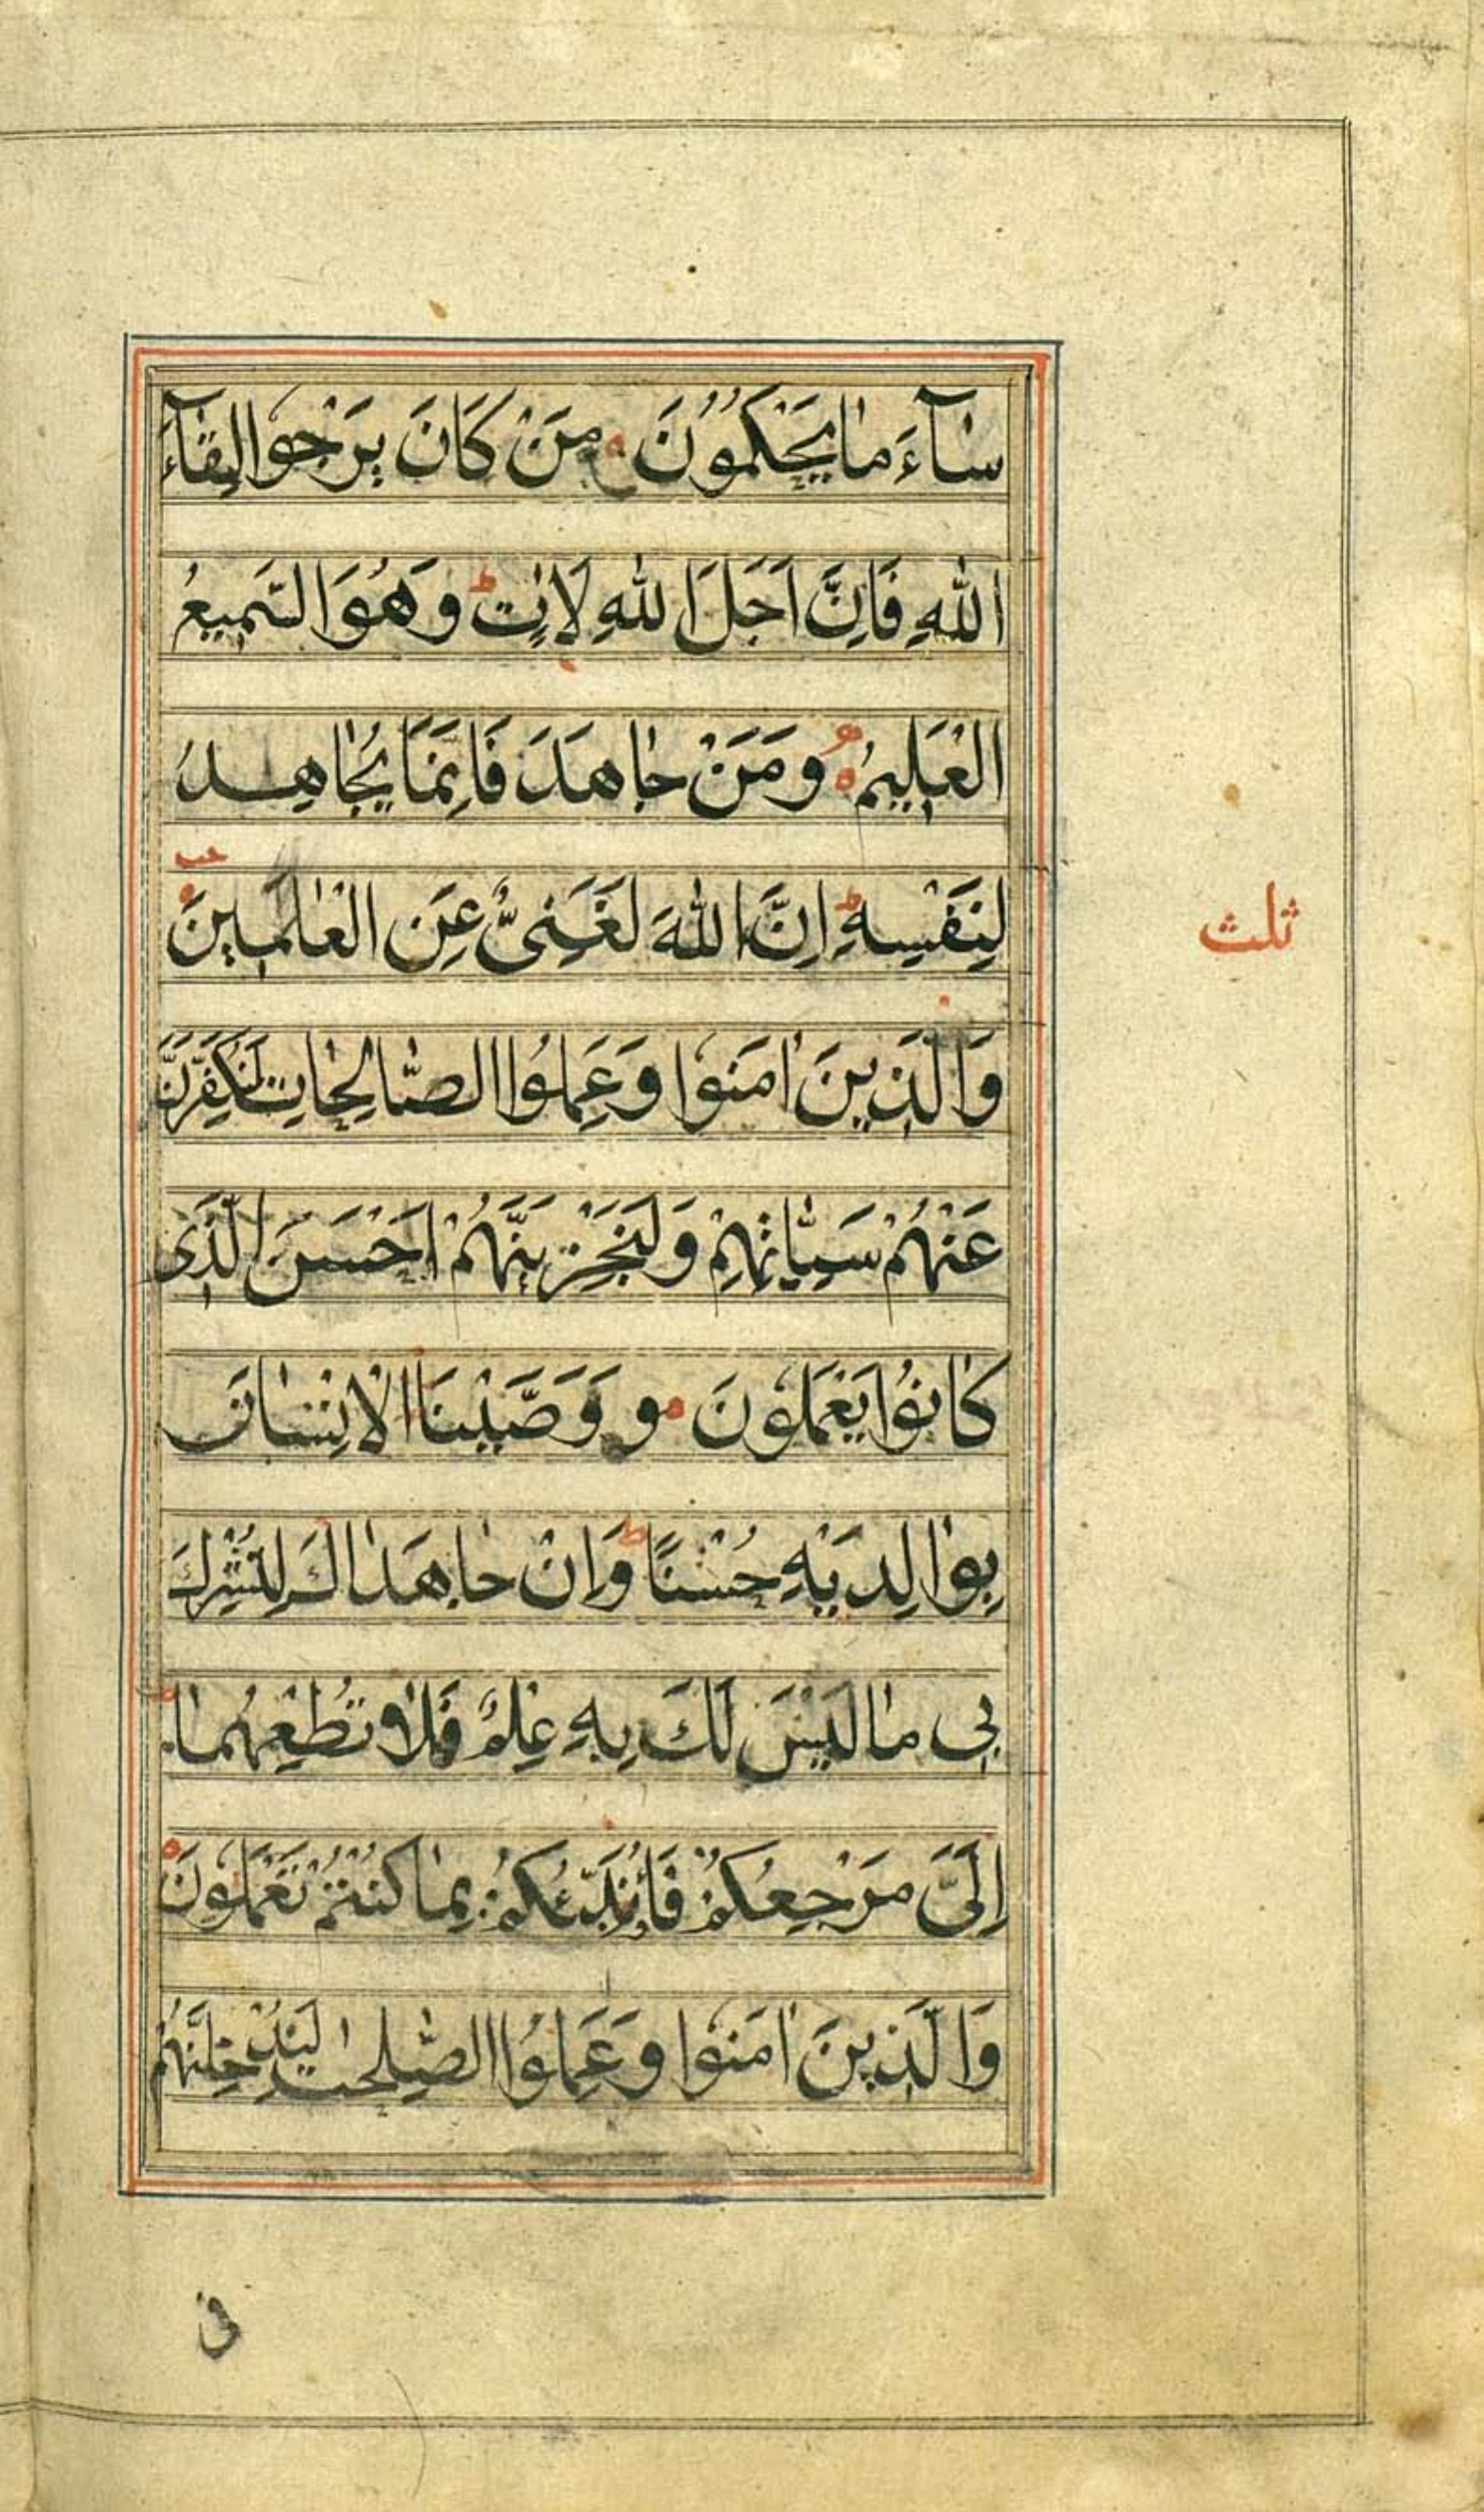 سٰآءَ مٰا يَحْكُمُوُنَ مَنْ كَانَ يَرْجُوا لِقٰآءَ
اللّٰهِ فَاِنَّ اَجَلَ اللّٰهِ لَاٰتٍ ط وَهُوَ السَّمِيعُ
الْعَلِيمُ وَمَنْ جٰاهَدَ فَاِنَّمَا يُجٰاهِدُ
ثلث
لِنَفْسِهِ ط اِنَّ اللّٰهَ لَغَنِىٌّ عَنِ الْعٰالَمِينَ
وَالَّذِينَ اٰمَنُوا وَعَمِلُوا الصّٰالِحٰاتِ لَنُكَفِّرَنَّ
عَنْهُمْ سَيِّئٰاتِهِمْ وَلَنَجْزِيَنَّهُمْ اَحْسَنَ الَّذِى
كٰانُوا يَعْمَلُونَ و وَوَصَّيْنَا الْاِنْسٰانَ
بِوٰالِدَيْهِ حُسْنًا ط وَاِنْ جٰاهَدٰاكَ لِتُشْرِكَ
بِى مٰا لَيْسَ لَكَ بِهِ عِلْمٌ فَلٰا تُطِعْهُمٰا ط
اِلَىَّ مَرْجِعُكُمْ فَاُنَبِّئُكُمْ بِمٰا كُنْتُمْ تَعْمَلُونَ
وَالَّذِينَ اٰمَنُوا وَعَمِلُوا الصّٰلِحٰتِ لَنُدْخِلَنَّهُمْ
فى